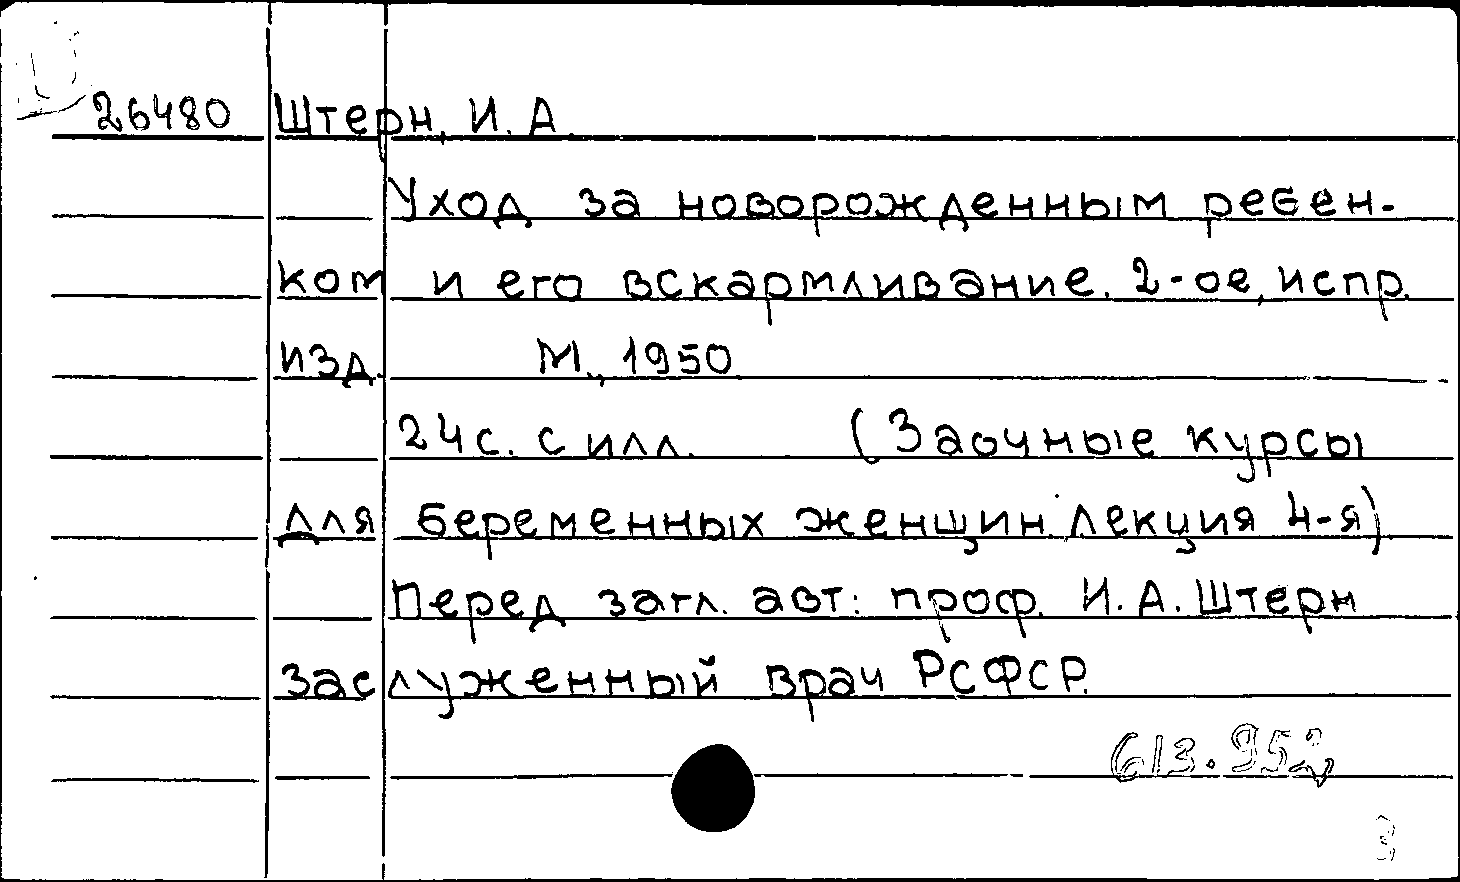 26480 Штерн, И. А.
Уход за новорожденным ребен-
ком и его вскармливание. 2-ое, испр.
изд. М., 1950
24 с. с илл. (Заочные курсы
для беременных женщин. Лекция 4-я)
Перед загл. авт: проф. И. А. Штерн
заслуженный врач РСФСР.
613.952
3